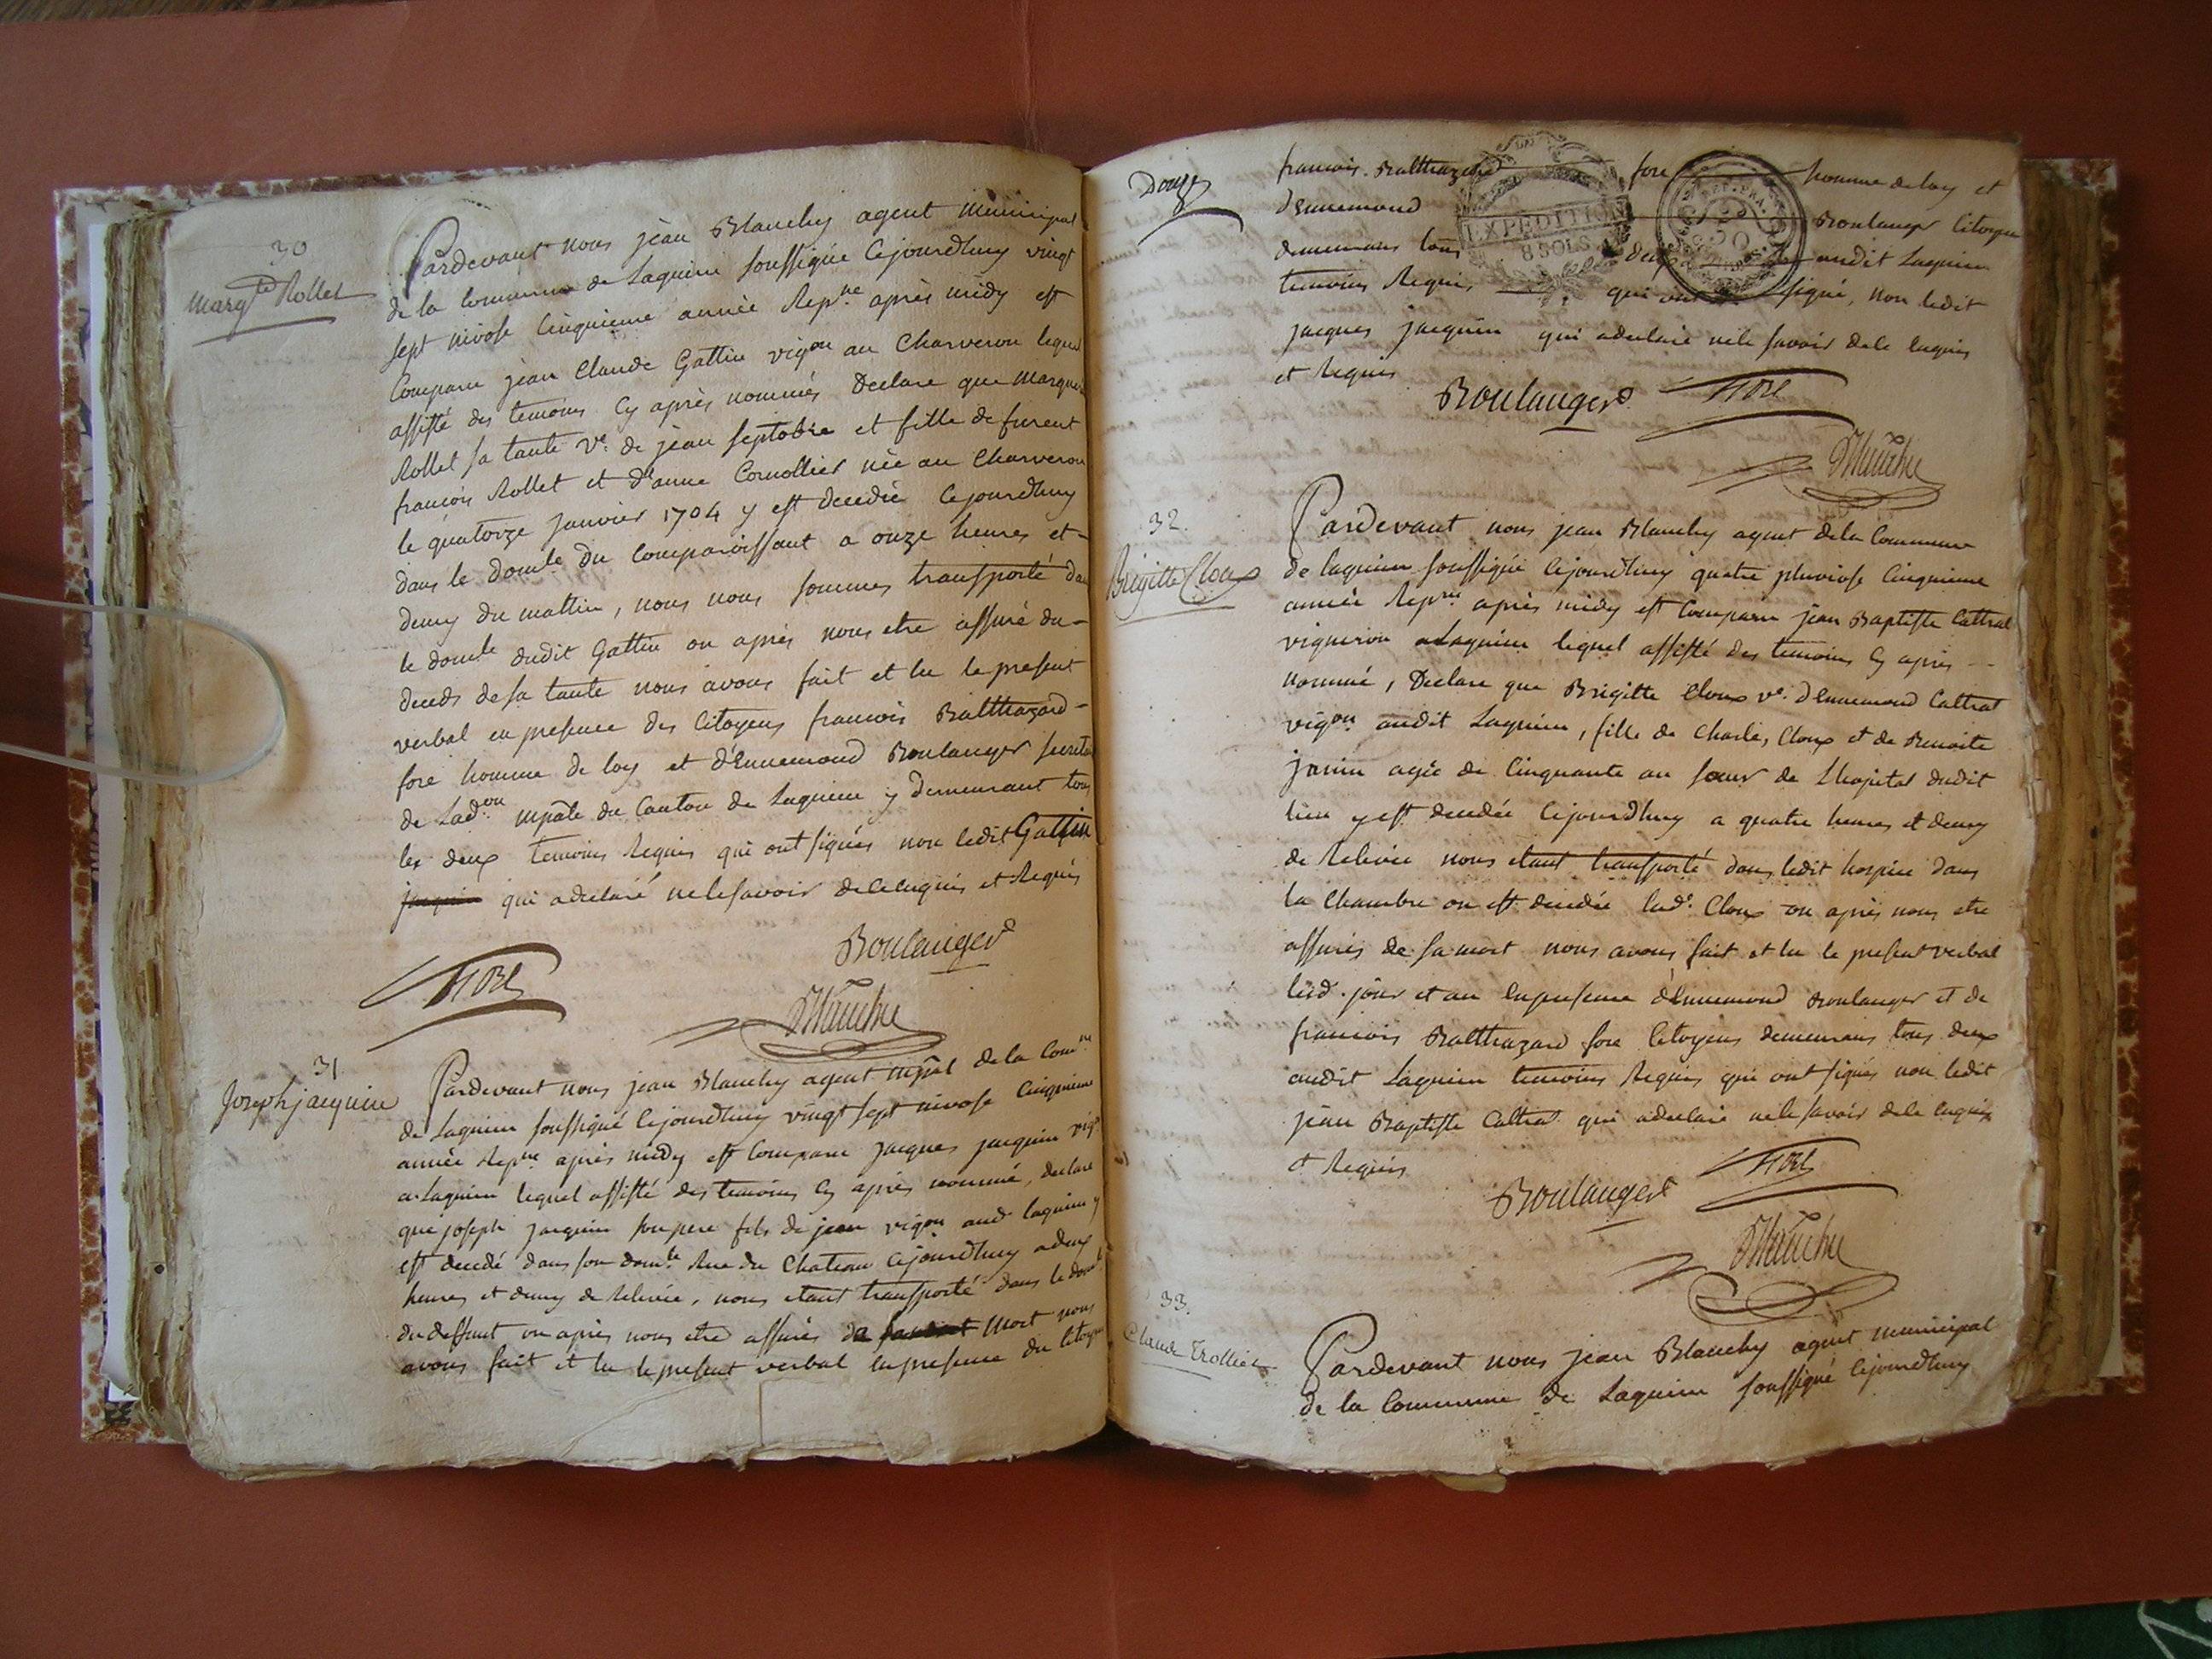 30
Marg.te Rollet
Pardevant nous jèan Blanchy agent municipal
de la Commune de Lagnieu soussigné Cejourdhuy vingt
sept nivose Cinquieme année Rep.ne après midy est
Comparu jèan Claude Gattin vig.on au Charveron lequel
assisté des temoins Cy après nommés Declare que Margue
Rollet sa tante V.e de jèan Septobre et fille de furent
francois Rollet et d'anne Cornollier née au Charveron
le quatorze janvier 1704 y est decedée Cejourdhuy
dans le domile du Comparoissant a onze heures et-
demy du mattin, nous nous sommes transporté da
le domile dudit Gattin ou après nous etre assuré du-
deceds de sa tante nous avons fait et lu le present
verbal en presence des Citoyens francois Balthazard-
fore homme de loy et d'Ennemond Boulanger secreta
de Lad.on mpâle du Canton de Lagnieu y demeurant tous
les deux temoins Requis qui ont signés non ledit Gattin
jacquin qui a declaré ne le savoir de ce enquis et Requis
Boulanger
fore
Blanchy
31
Joseph jacquin
Pardevant nous jean Blanchy agent mpâl de la Com.ne
de Lagnieu soussigné Cejourdhuy vingt sept nivose Cinquieme
année Rep.ne après midy est Comparu jacques jacquin vig.n
a Lagnieu lequel assisté des temoins Cy après nommé, declare
que joseph jacquin son pere fils de jean vig.on aud lagnieu y
est decedé dans son dom.le Rue du Chateau Cejourdhuy a deux
heures et demy de Relevée, nous etant transporté dans le dom.le
du deffunt ou après nous etre assurés de mort nous
avons fait et lu le present verbal en presence du Citoyen
Douze
francois Balthazard fore homme de loy et
d'Ennemond Boulanger Citoyen
demeurans tous deux audit Lagnieu
EXPEDITION
8 SOLS
temoins Requis qui ont signé, non ledit
jacques jacquin qui a declaré ne le savoir de ce enquis
et Requis
Boulanger fore
Blanchy
32.
Brigitte Cloux
Pardevant nous jean Blanchy agent de la Commune
de lagnieu soussigné Cejourdhuy quatre pluviose Cinquieme
année Rep.ne après midy est Comparu jean Baptiste Cattrat
vigneron a Lagnieu lequel assisté des temoins Cy après
nommé, Declare que Brigitte Cloux v.e d'Ennemond Cattrat
vig.on audit Lagnieu, fille de Charles Cloux et de Benoite
janin agée de Cinquante an soeur de L'hopital dudit
lieu y est decedée Cejourdhuy a quatre heures et demy
de Relevée nous etant transporté dans ledit hospice dans
la Chambre ou est decedée lad.e Cloux ou après nous etre
assurés de sa mort nous avons fait et lu le present verbal
lesd. jour et an en presence d'Ennemond Boulanger et de
francois Balthazard fore Citoyens demeurans tous deux
audit Lagnieu temoins Requis qui ont signés non ledit
jean Baptiste Cattrat qui a declaré ne le savoir de ce enquis
et Requis
Boulanger fore
Blanchy
33.
Claude Trollier
Pardevant nous jean Blanchy agent municipal
de la Commune de Lagnieu soussigné Cejourdhuy